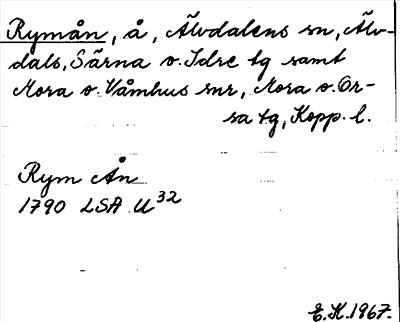 Rymån, å, Älvdalens sn, Älv-
dals, Särna o. Idre tg samt
Mora o. Våmhus snr, Mora o. Or-
sa tg, Kopp. l.
Rym Ån
1790 LSA U³²
E.H.1967.